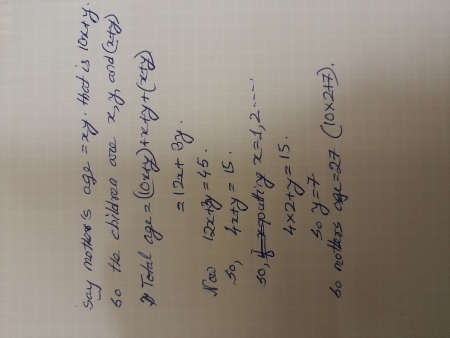 Say mother's age = xy. that is 10x+y.
So the children are x, y, and (x+y)
Total age = (10x+y)+x+y+(x+y)
= 12x+3y.
Now 12x+3y = 45.
So, 4x+y = 15.
so, putting x=1,2....
4x2+y = 15.
So y=7
So mothers age=27 (10x2+7).